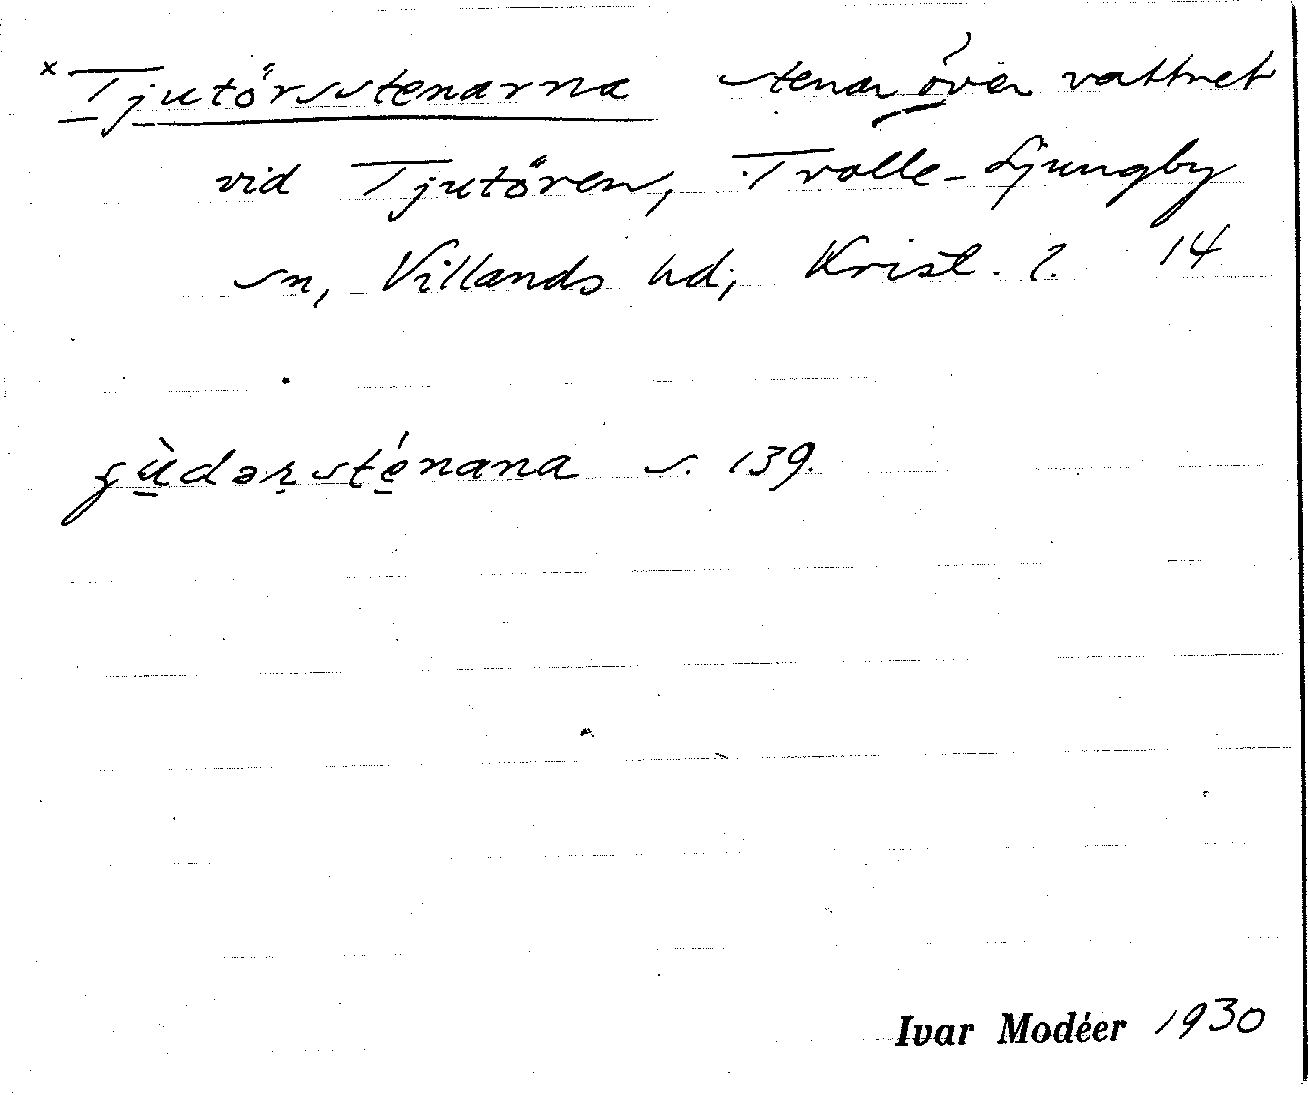 x Tjutörsstenarna stenar över vattnet
vid Tjutören, Trolle-Ljungby
sn, Villands hd, Krist. l. 14
ʃù̱dəṛsté̱nana s. 139.
Ivar Modéer 1930